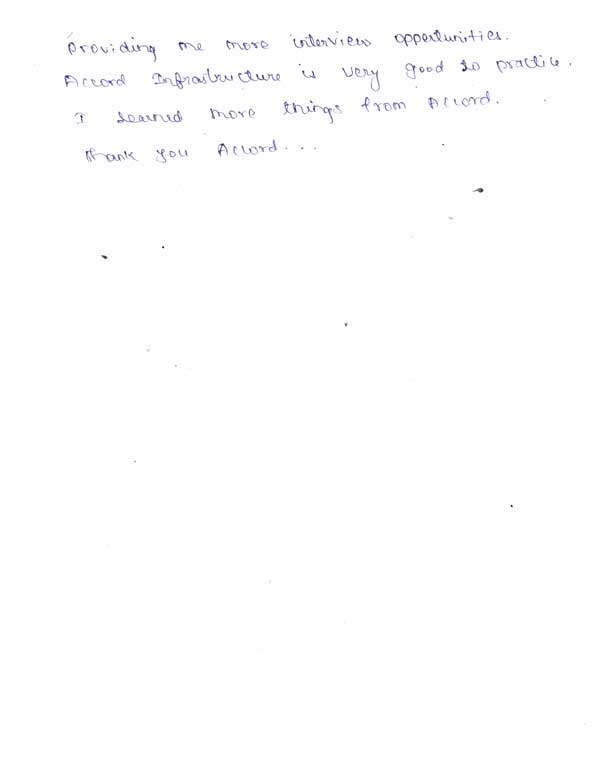 Providing me more interview oppertunities.
Accord Infrastructure is very good to practice.
I learned more things from Accord.
Thank you Accord...